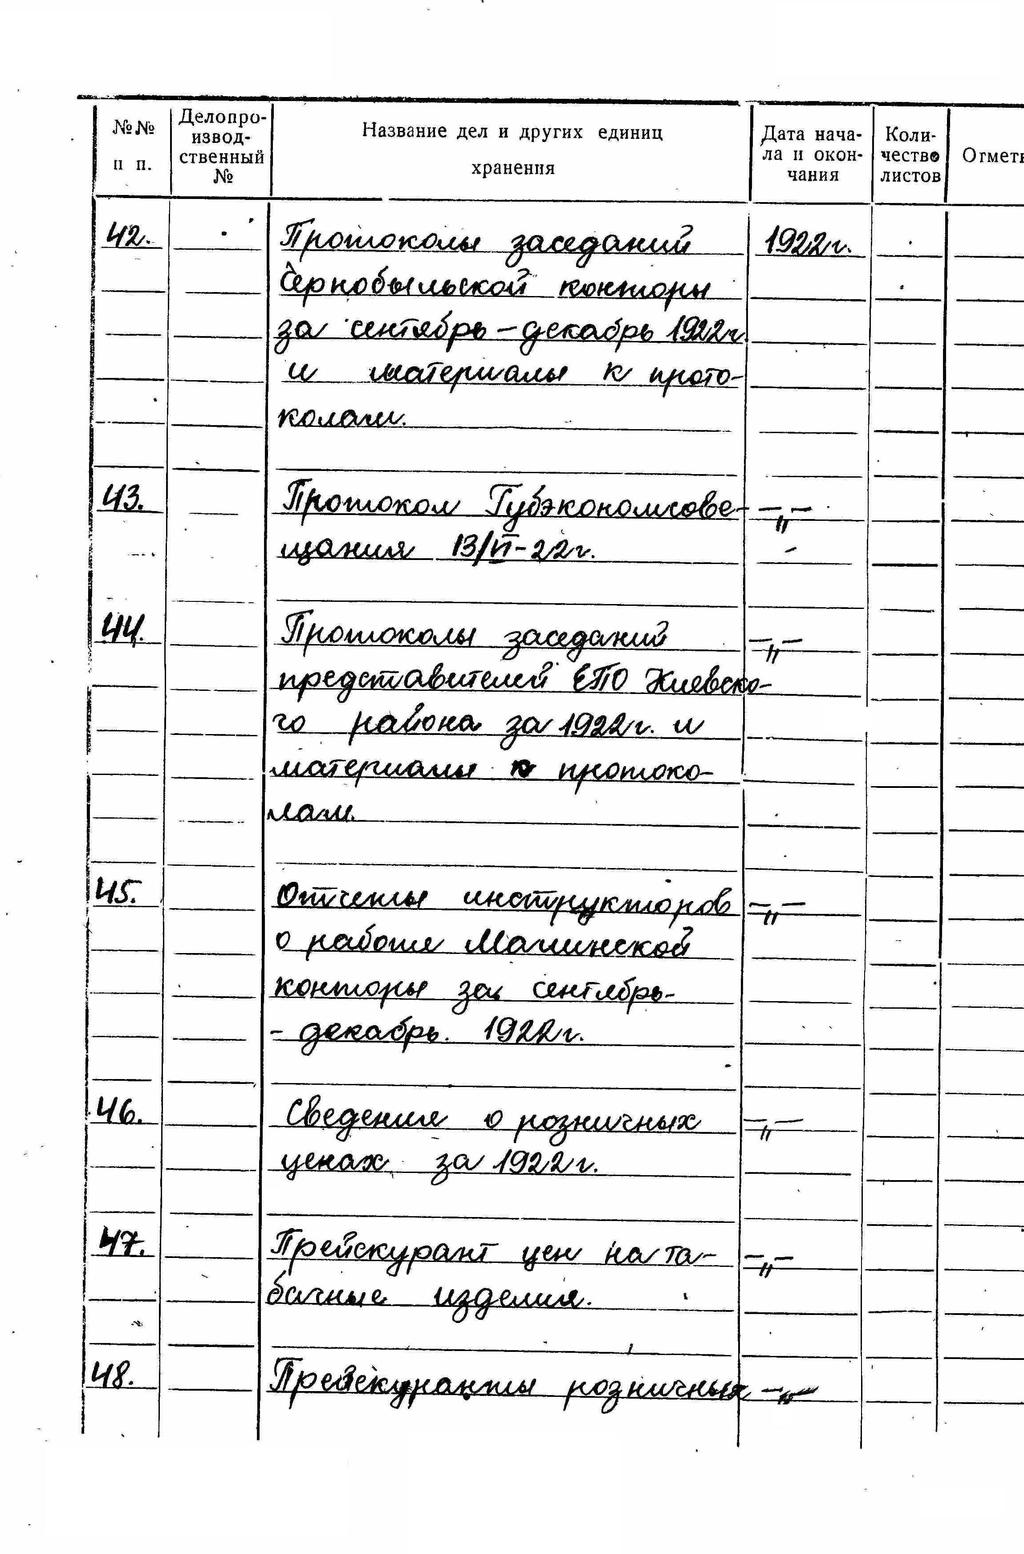 №№ п п.
Делопро-
извод-
ственный
№
Название дел и других единиц
хранения
Дата нача-
ла и окон-
чания
Коли-
чество
листов
Отмет
42. Протоколы заседаний 1922 г.
Чернобыльской конторы
за сентябрь – декабрь 1922 г
и материалы к прото-
колам.
43. Протокол Губэкономсове- – „ –
щания 13/VI – 22 г.
44. Протоколы заседаний – „ –
представителей ЕПО Киевско-
го района за 1922 г. и
материалы к протоко-
лам.
45. Отчеты инструкторов – „ –
о работе Малинской
конторы за сентябрь-
- декабрь. 1922 г.
46. Сведения о розничных – „ –
ценах за 1922 г.
47. Прейскурант цен на та- – „ –
бачные изделия.
48. Прейскуранты розничных – „ –